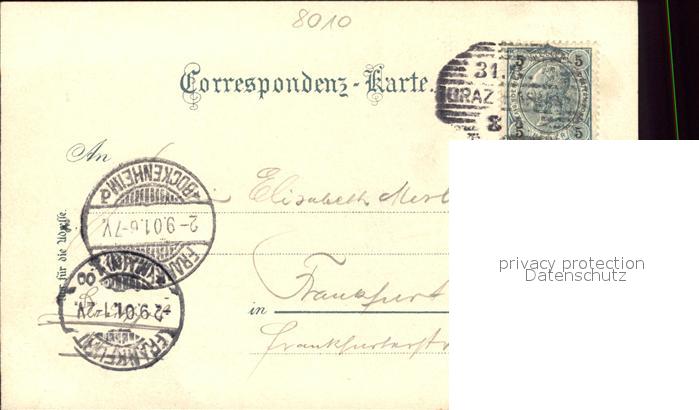 8010
Correspondenz-Karte.
31.
GRAZ
8
5 5
5 5
An
Elisabeth
BOCKENHEIM
2-9.01.6-7V.
Nur für die Adresse.
FRANKFURT (MAIN) 1
2.9.01.1-2V.
in Frankfurt
Frankfurterstr
privacy protection
Datenschutz